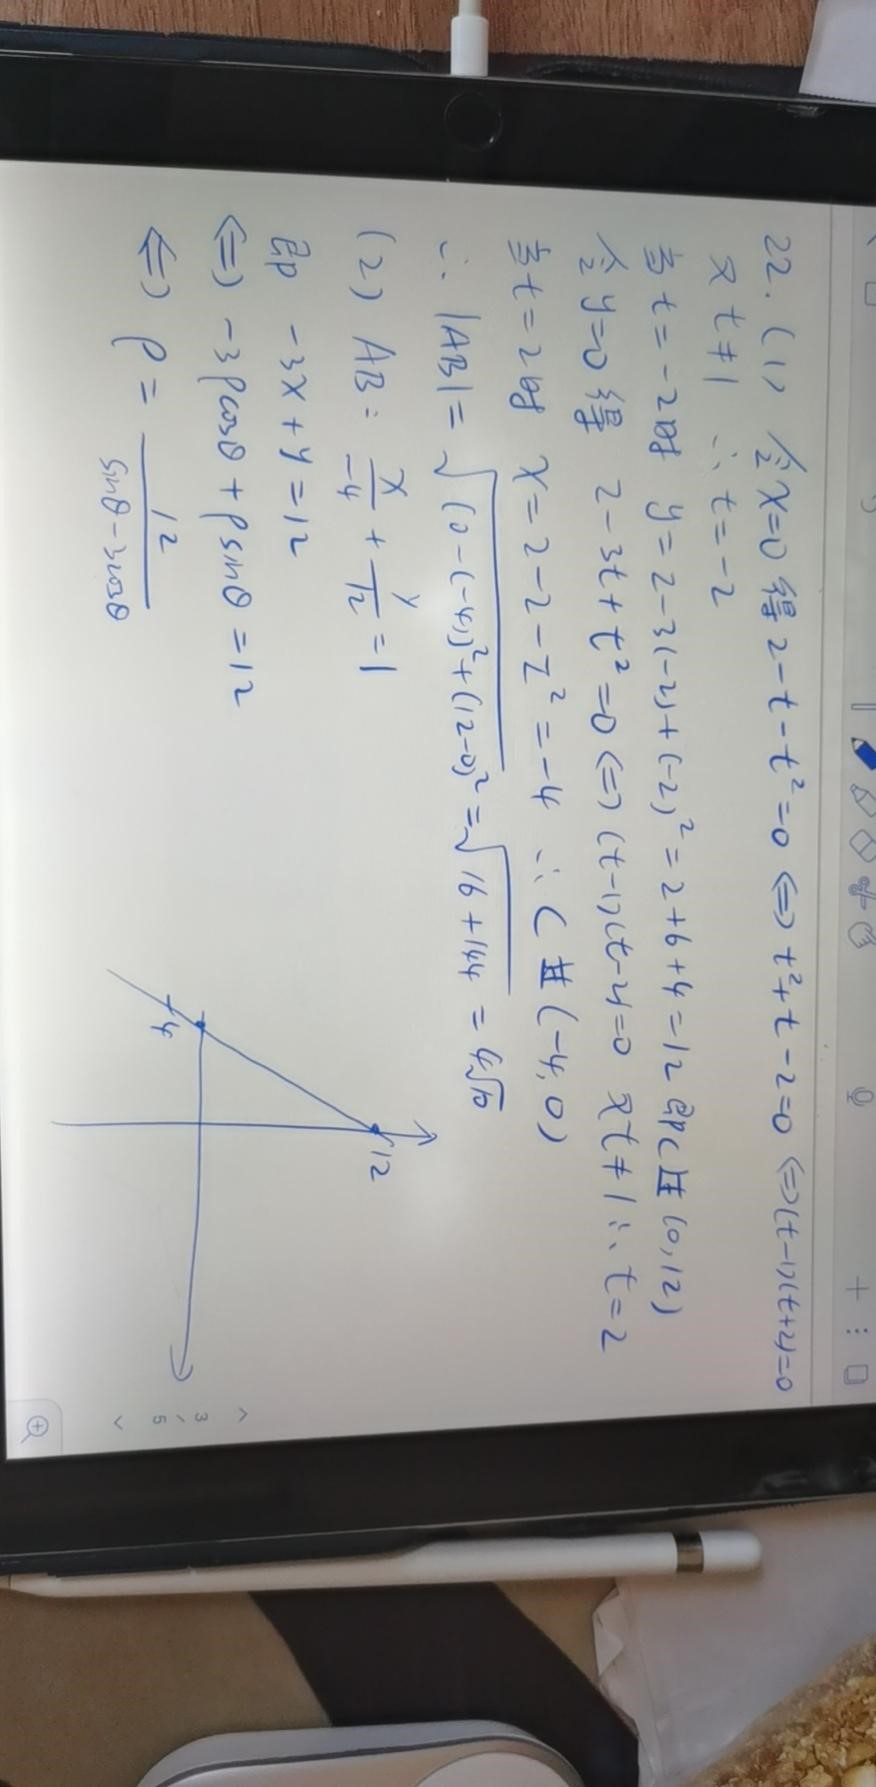 22. (1) 令x=0得 2-t-t²=0 ⇔ t²+t-2=0 ⇔(t-1)(t+2)=0
又t≠1 ∴t=-2
当t=-2时 y=2-3(-2)+(-2)²=2+6+4=12 即C过(0,12)
令y=0得 2-3t+t²=0 ⇔ (t-1)(t-2)=0 又t≠1∴t=2
当t=2时 x=2-2-2²=-4 ∴C过(-4,0)
∴ |AB|=√((0-(-4))²+(12-0)²)=√(16+144)=4√10
(2) AB: x/-4 + y/12 =1
即 -3x+y=12
⇔ -3ρcosθ+ρsinθ=12
⇔ ρ= 12/(sinθ-3cosθ)
12
-4
3 / 5